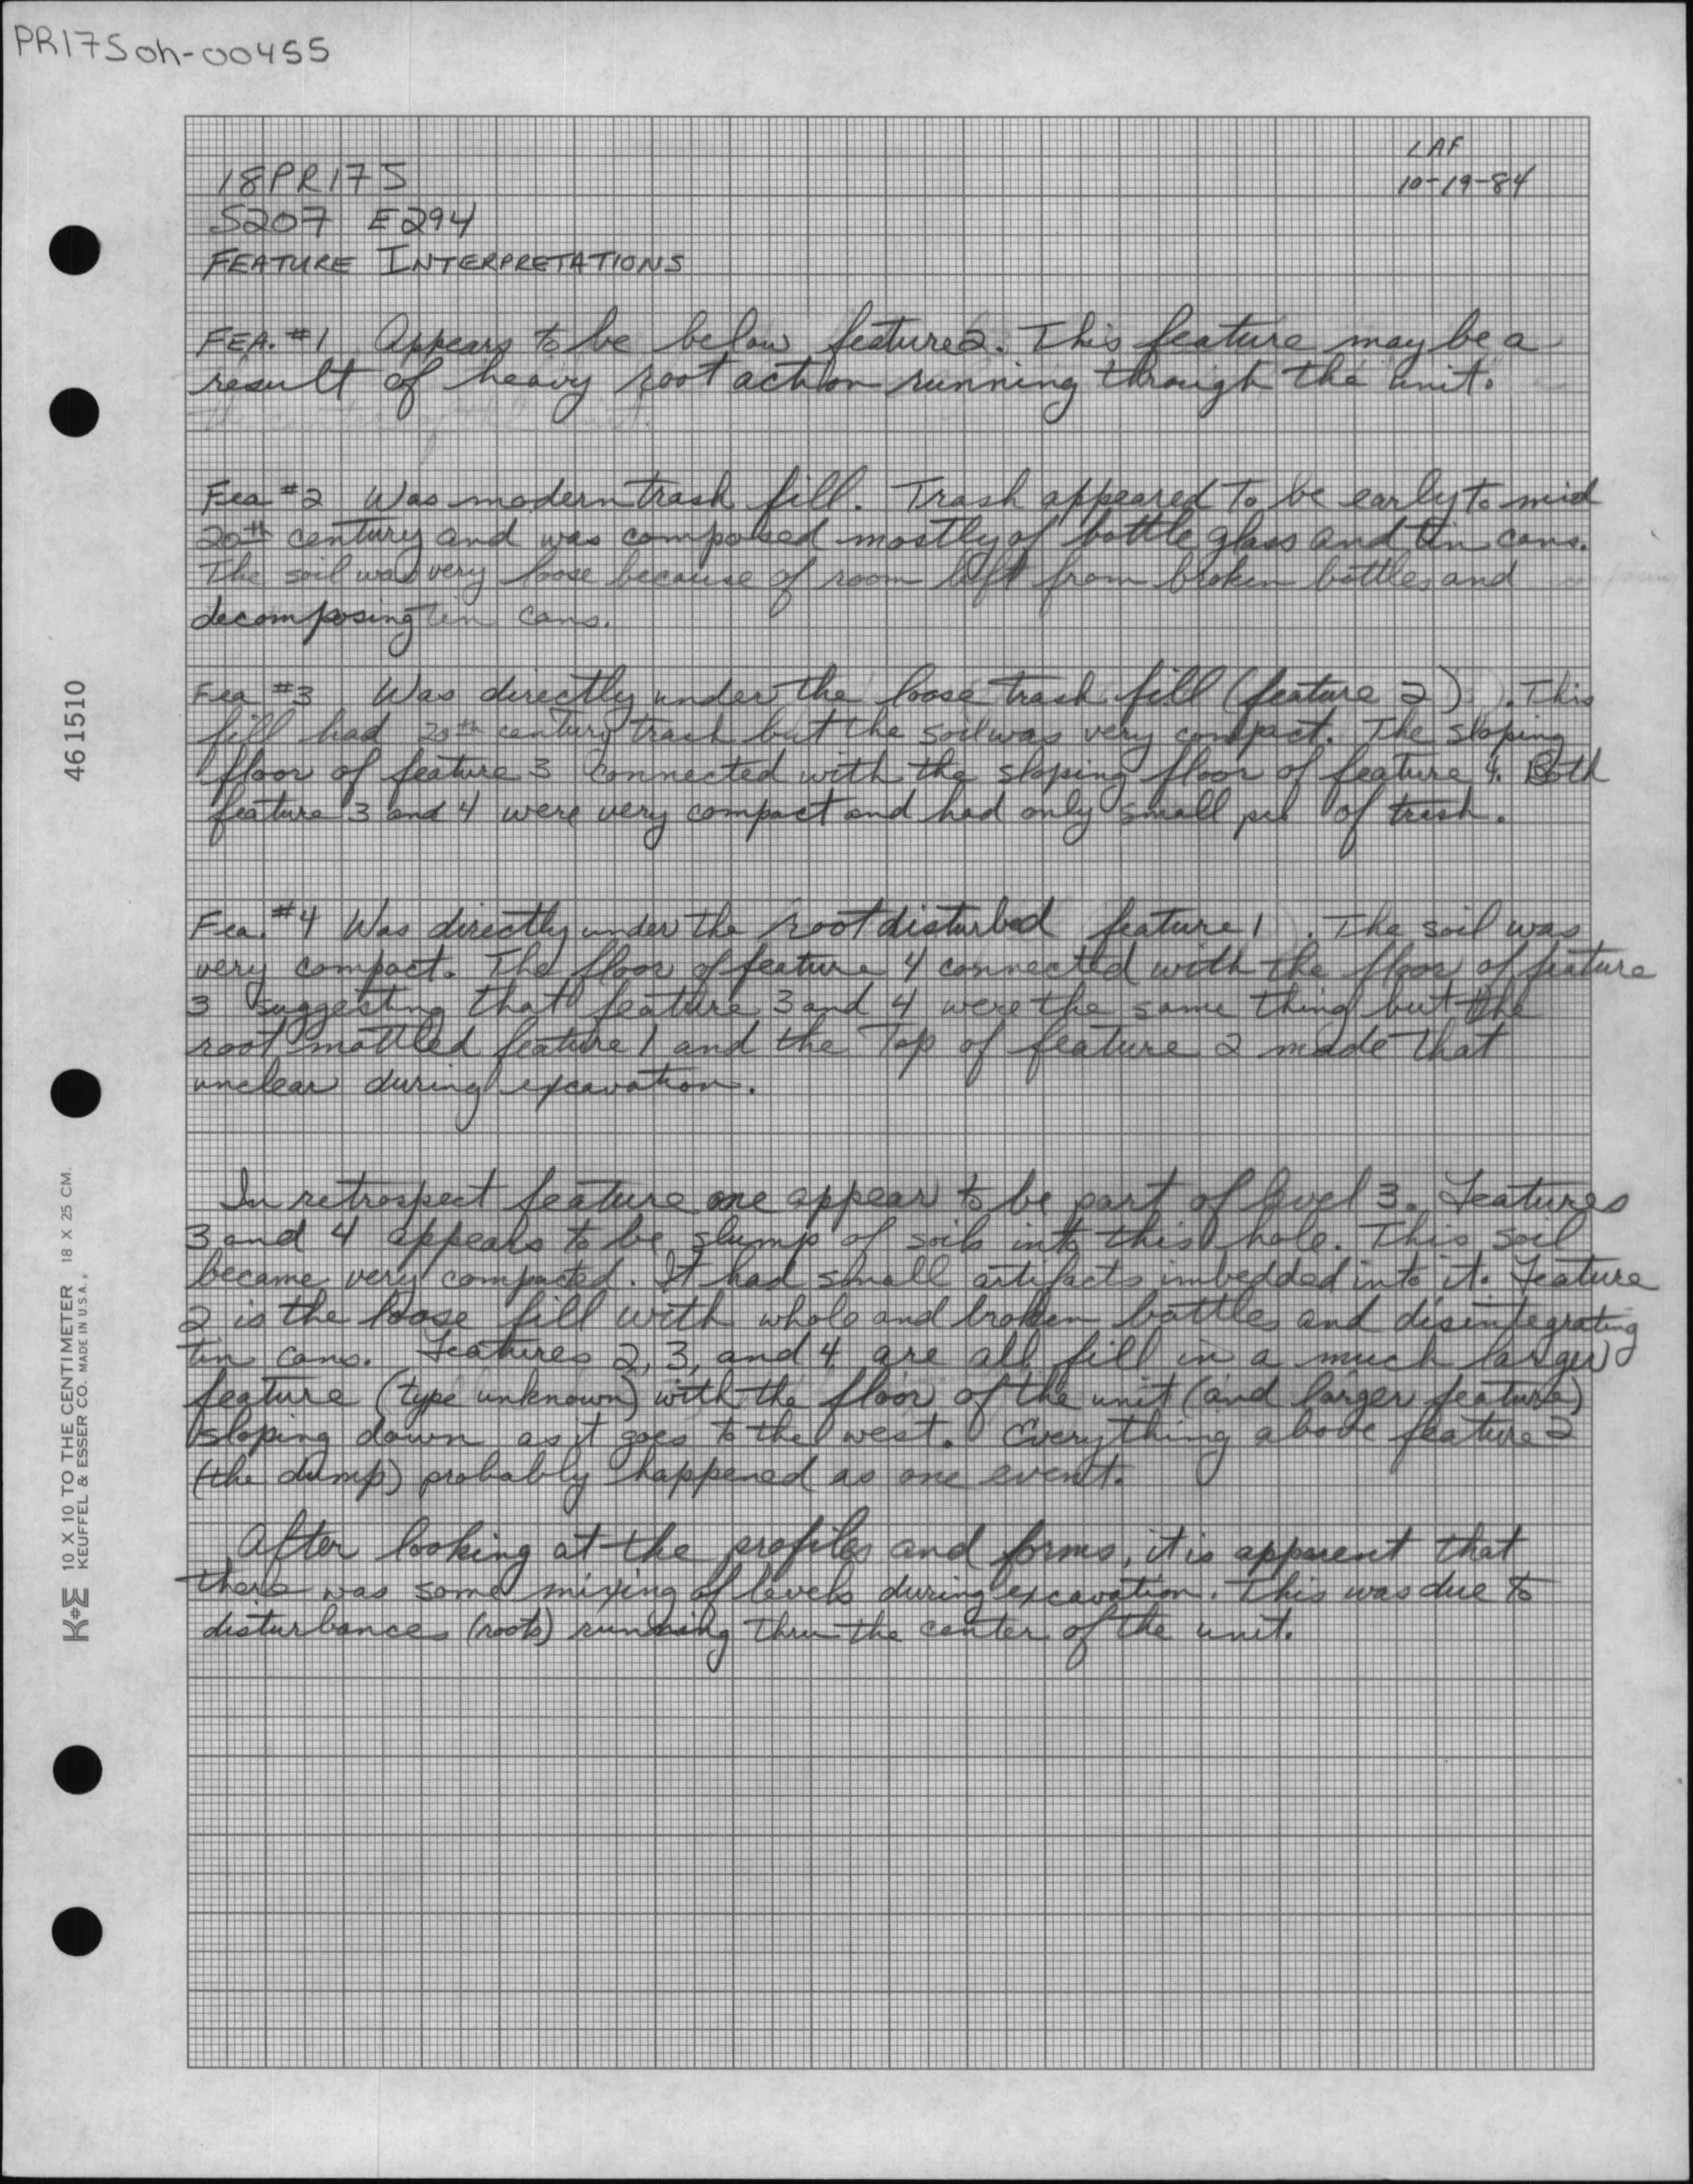 PR175oh-00455
LAF
10-19-84
18PR175
S207 E294
FEATURE INTERPRETATIONS
FEA. #1 Appears to be below feature 2. This feature may be a
result of heavy root action running through the unit.
the center of the unit.
Fea #2 Was modern trash fill. Trash appeared to be early to mid
20th century and was composed mostly of bottle glass and tin cans.
The soil was very loose because of room left from broken bottles and
decomposing tin cans.
Fea #3 Was directly under the loose trash fill (feature 2). This
fill had 20th century trash but the soil was very compact. The sloping
floor of feature 3 connected with the sloping floor of feature 4. Both
feature 3 and 4 were very compact and had only small of trash.
Fea. #4 Was directly under the root disturbed feature 1. The soil was
very compact. The floor of feature 4 connected with the floor of feature
3 suggesting that feature 3 and 4 were the same thing but the
root mottled feature 1 and the top of feature 2 made that
unclear during excavation.
In retrospect feature one appears to be part of level 3. Features
3 and 4 appears to be slump of soils into this hole. This soil
became very compacted. It had small artifacts imbedded into it. Feature
2 is the loose fill with whole and broken bottles and disintegrating
tin cans. Features 2, 3, and 4 are all fill in a much larger
feature (type unknown) with the floor of the unit (and larger feature)
sloping down as it goes to the west. Everything above feature 2
(the dump) probably happened as one event.
After looking at the profiles and forms, it is apparent that
there was some mixing of levels during excavation. This was due to
disturbances (roots) running thru the center of the unit.
461510
K+E 10 X 10 TO THE CENTIMETER 18 X 25 CM.
KEUFFEL & ESSER CO. MADE IN U.S.A.